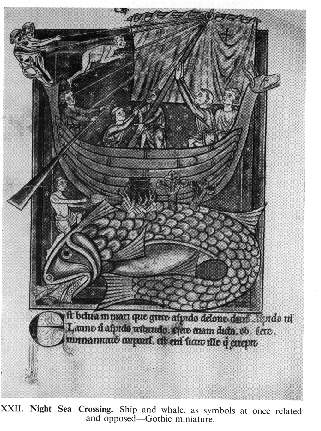 Est belua in mari que grece aspido delone
Latine aspido testudo. Cete etiam dicta. ob.
corporis. est eni sicut ille q excepit
XXII. Night Sea Crossing. Ship and whale, as symbols at once related
and opposed—Gothic miniature.